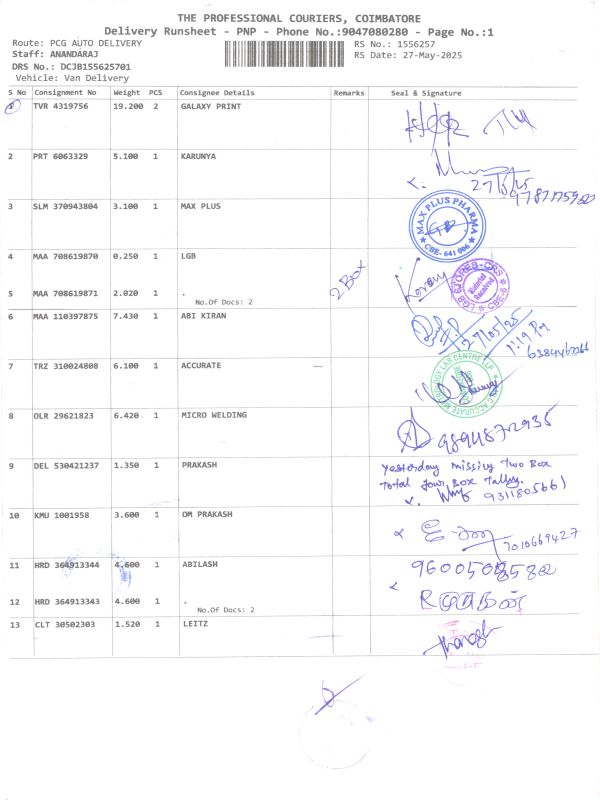 THE PROFESSIONAL COURIERS, COIMBATORE
Delivery Runsheet - PNP - Phone No.:9047080280 - Page No.:1
Route: PCG AUTO DELIVERY
RS No.: 1556257
Staff: ANANDARAJ
RS Date: 27-May-2025
DRS No.: DCJB155625701
Vehicle: Van Delivery
S No Consignment No Weight PCS Consignee Details Remarks Seal & Signature
1 TVR 4319756 19.200 2 GALAXY PRINT
2 PRT 6063329 5.100 1 KARUNYA
27/5/25
3 SLM 370943804 3.100 1 MAX PLUS
MAX PLUS PHARMA
CBE- 641 006
4 MAA 708619870 0.250 1 LGB
2 Box
LGB STORES-CRS
Material Received
CBE-6
5 MAA 708619871 2.020 1 .
No.Of Docs: 2
6 MAA 110397875 7.430 1 ABI KIRAN
27/05/25
1:19 Pm
7 TRZ 310024808 6.100 1 ACCURATE
8 OLR 29621823 6.420 1 MICRO WELDING
9894872935
9 DEL 530421237 1.350 1 PRAKASH
Yesterday missing Two Box
Total four Box Talley.
9311805661
10 KMU 1001958 3.600 1 OM PRAKASH
7010669427
11 HRD 364913344 4.600 1 ABILASH
12 HRD 364913343 4.600 1 .
No.Of Docs: 2
13 CLT 30502303 1.520 1 LEITZ